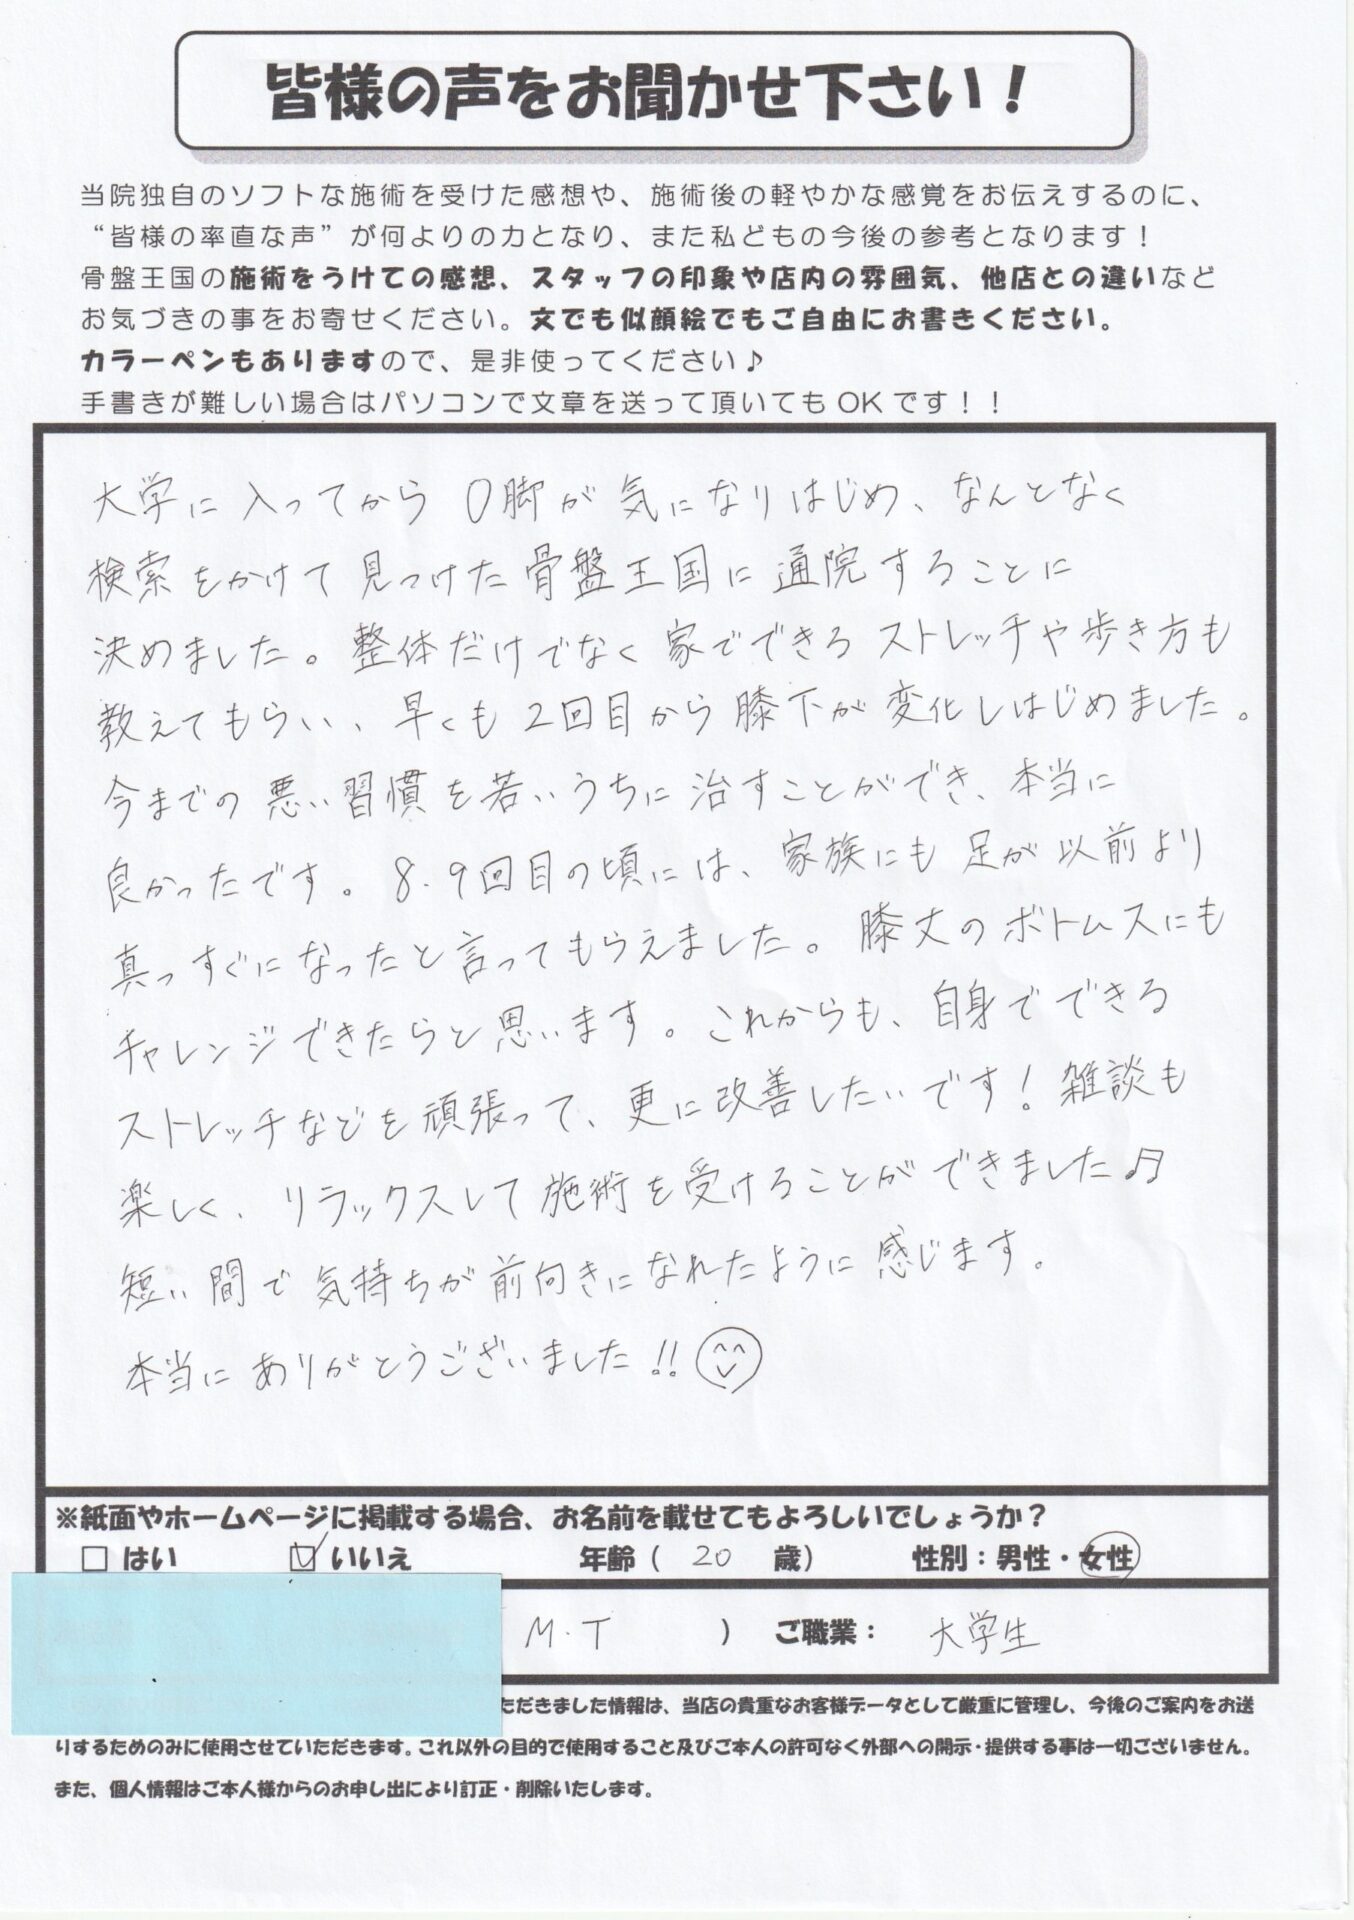 皆様の声をお聞かせ下さい！
当院独自のソフトな施術を受けた感想や、施術後の軽やかな感覚をお伝えするのに、
“皆様の率直な声”が何よりの力となり、また私どもの今後の参考となります！
骨盤王国の施術をうけての感想、スタッフの印象や店内の雰囲気、他店との違いなど
お気づきの事をお寄せください。文でも似顔絵でもご自由にお書きください。
カラーペンもありますので、是非使ってください♪
手書きが難しい場合はパソコンで文章を送って頂いてもOKです！！
大学に入ってから O脚が気になりはじめ、なんとなく
検索をかけて見つけた骨盤王国に通院することに
決めました。整体だけでなく家でできるストレッチや歩き方も
教えてもらい、早くも2回目から膝下が変化しはじめました。
今までの悪い習慣を若いうちに治すことができ、本当に
良かったです。8.9回目の頃には、家族にも足が以前より
真っすぐになったと言ってもらえました。膝丈のボトムスにも
チャレンジできたらと思います。これからも、自身でできる
ストレッチなどを頑張って、更に改善したいです！雑談も
楽しく、リラックスして施術を受けることができました♬
短い間で気持ちが前向きになれたように感じます。
本当にありがとうございました!!
※紙面やホームページに掲載する場合、お名前を載せてもよろしいでしょうか？
□ はい ☑ いいえ 年齢（ 20 歳） 性別：男性・女性
M.T ） ご職業： 大学生
ただきました情報は、当店の貴重なお客様データとして厳重に管理し、今後のご案内をお送
りするためのみに使用させていただきます。これ以外の目的で使用すること及びご本人の許可なく外部への開示・提供する事は一切ございません。
また、個人情報はご本人様からのお申し出により訂正・削除いたします。